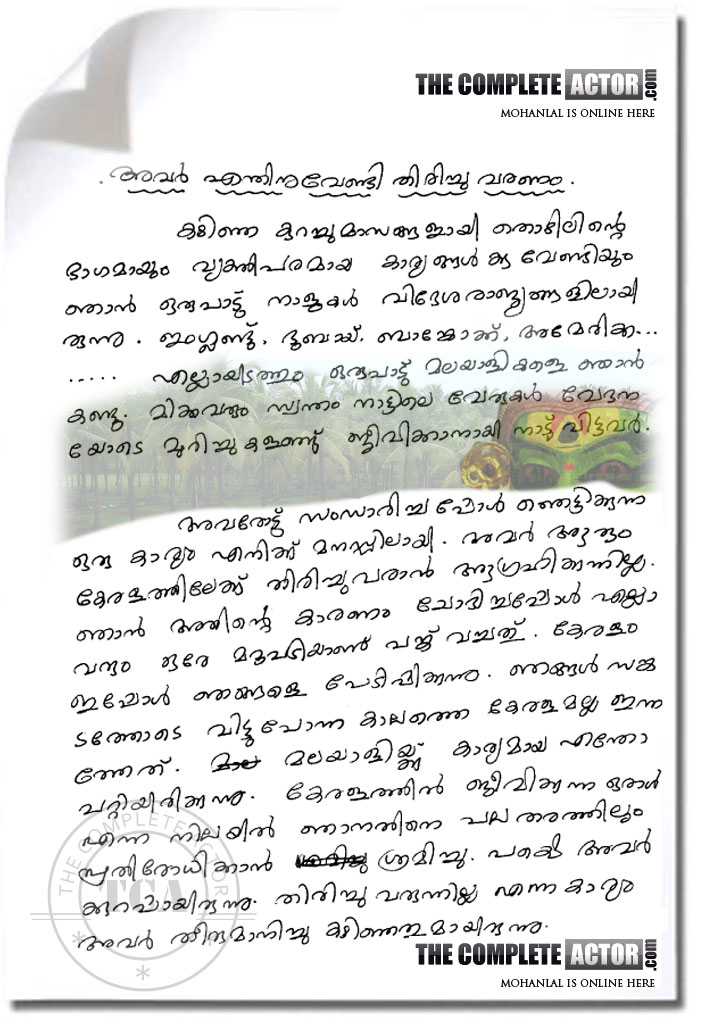 THE COMPLETE ACTOR.com
MOHANLAL IS ONLINE HERE
. അവർ എന്തിനുവേണ്ടി തിരിച്ചു വരണം .
കഴിഞ്ഞ കുറച്ചുമാസങ്ങളായി തൊഴിലിന്റെ
ഭാഗമായും വ്യക്തിപരമായ കാര്യങ്ങൾക്കു വേണ്ടിയും
ഞാൻ ഒരുപാട്ടു നാളുകൾ വിദേശരാജ്യങ്ങളിലായി
രുന്നു . ഇംഗ്ലണ്ടു്, ദുബായ്. ബാങ്കോക്ക്, അമേരിക്ക...
..... എല്ലായിടത്തും ഒരുപാട്ടു് മലയാളികളെ ഞാൻ
കണ്ടു. മിക്കവരും സ്വന്തം നാട്ടിലെ വേരുകൾ വേദന
യോടെ മുറിച്ചുകളഞ്ഞ് ജീവിക്കാനായി നാട്ടു് വിട്ടവർ.
അവരോട്ടു് സംസാരിച്ചപ്പോൾ ഞെട്ടിക്കുന്ന
ഒരു കാര്യം എനിക്ക് മനസ്സിലായി . അവർ ആരും
കേരളത്തിലേക്ക് തിരിച്ചുവരാൻ ആഗ്രഹിക്കുന്നില്ല.
ഞാൻ അതിന്റെ കാരണം ചോദിച്ചപ്പോൾ എല്ലാ
വരും ഒരേ മറുപടിയാണ് പങ്ക് വച്ചത് . കേരളം
ഇപ്പോൾ ഞങ്ങളെ പേടിപ്പിക്കുന്നു . ഞങ്ങൾ സങ്ക
ടത്തോടെ വിട്ടുപോന്ന കാലത്തെ കേരളമല്ല ഇന്ന
ത്തേത് . മലയാളിയ്ക്ക് കാര്യമായ എന്തോ
പറ്റിയിരിക്കുന്നു. കേരളത്തിൽ ജീവിക്കുന്ന ഒരാൾ
എന്ന നിലയിൽ ഞാനതിനെ പല തരത്തിലും
പ്രതിരോധിക്കാൻ ശ്രമിച്ചു. പക്ഷെ അവർ
ഉറപ്പായിരുന്നു. തിരിച്ചു വരുന്നില്ല എന്ന കാര്യം
അവർ തീരുമാനിച്ചു കഴിഞ്ഞതുമായിരുന്നു.
THE COMPLETE ACTOR
TCA
THE COMPLETE ACTOR.com
MOHANLAL IS ONLINE HERE